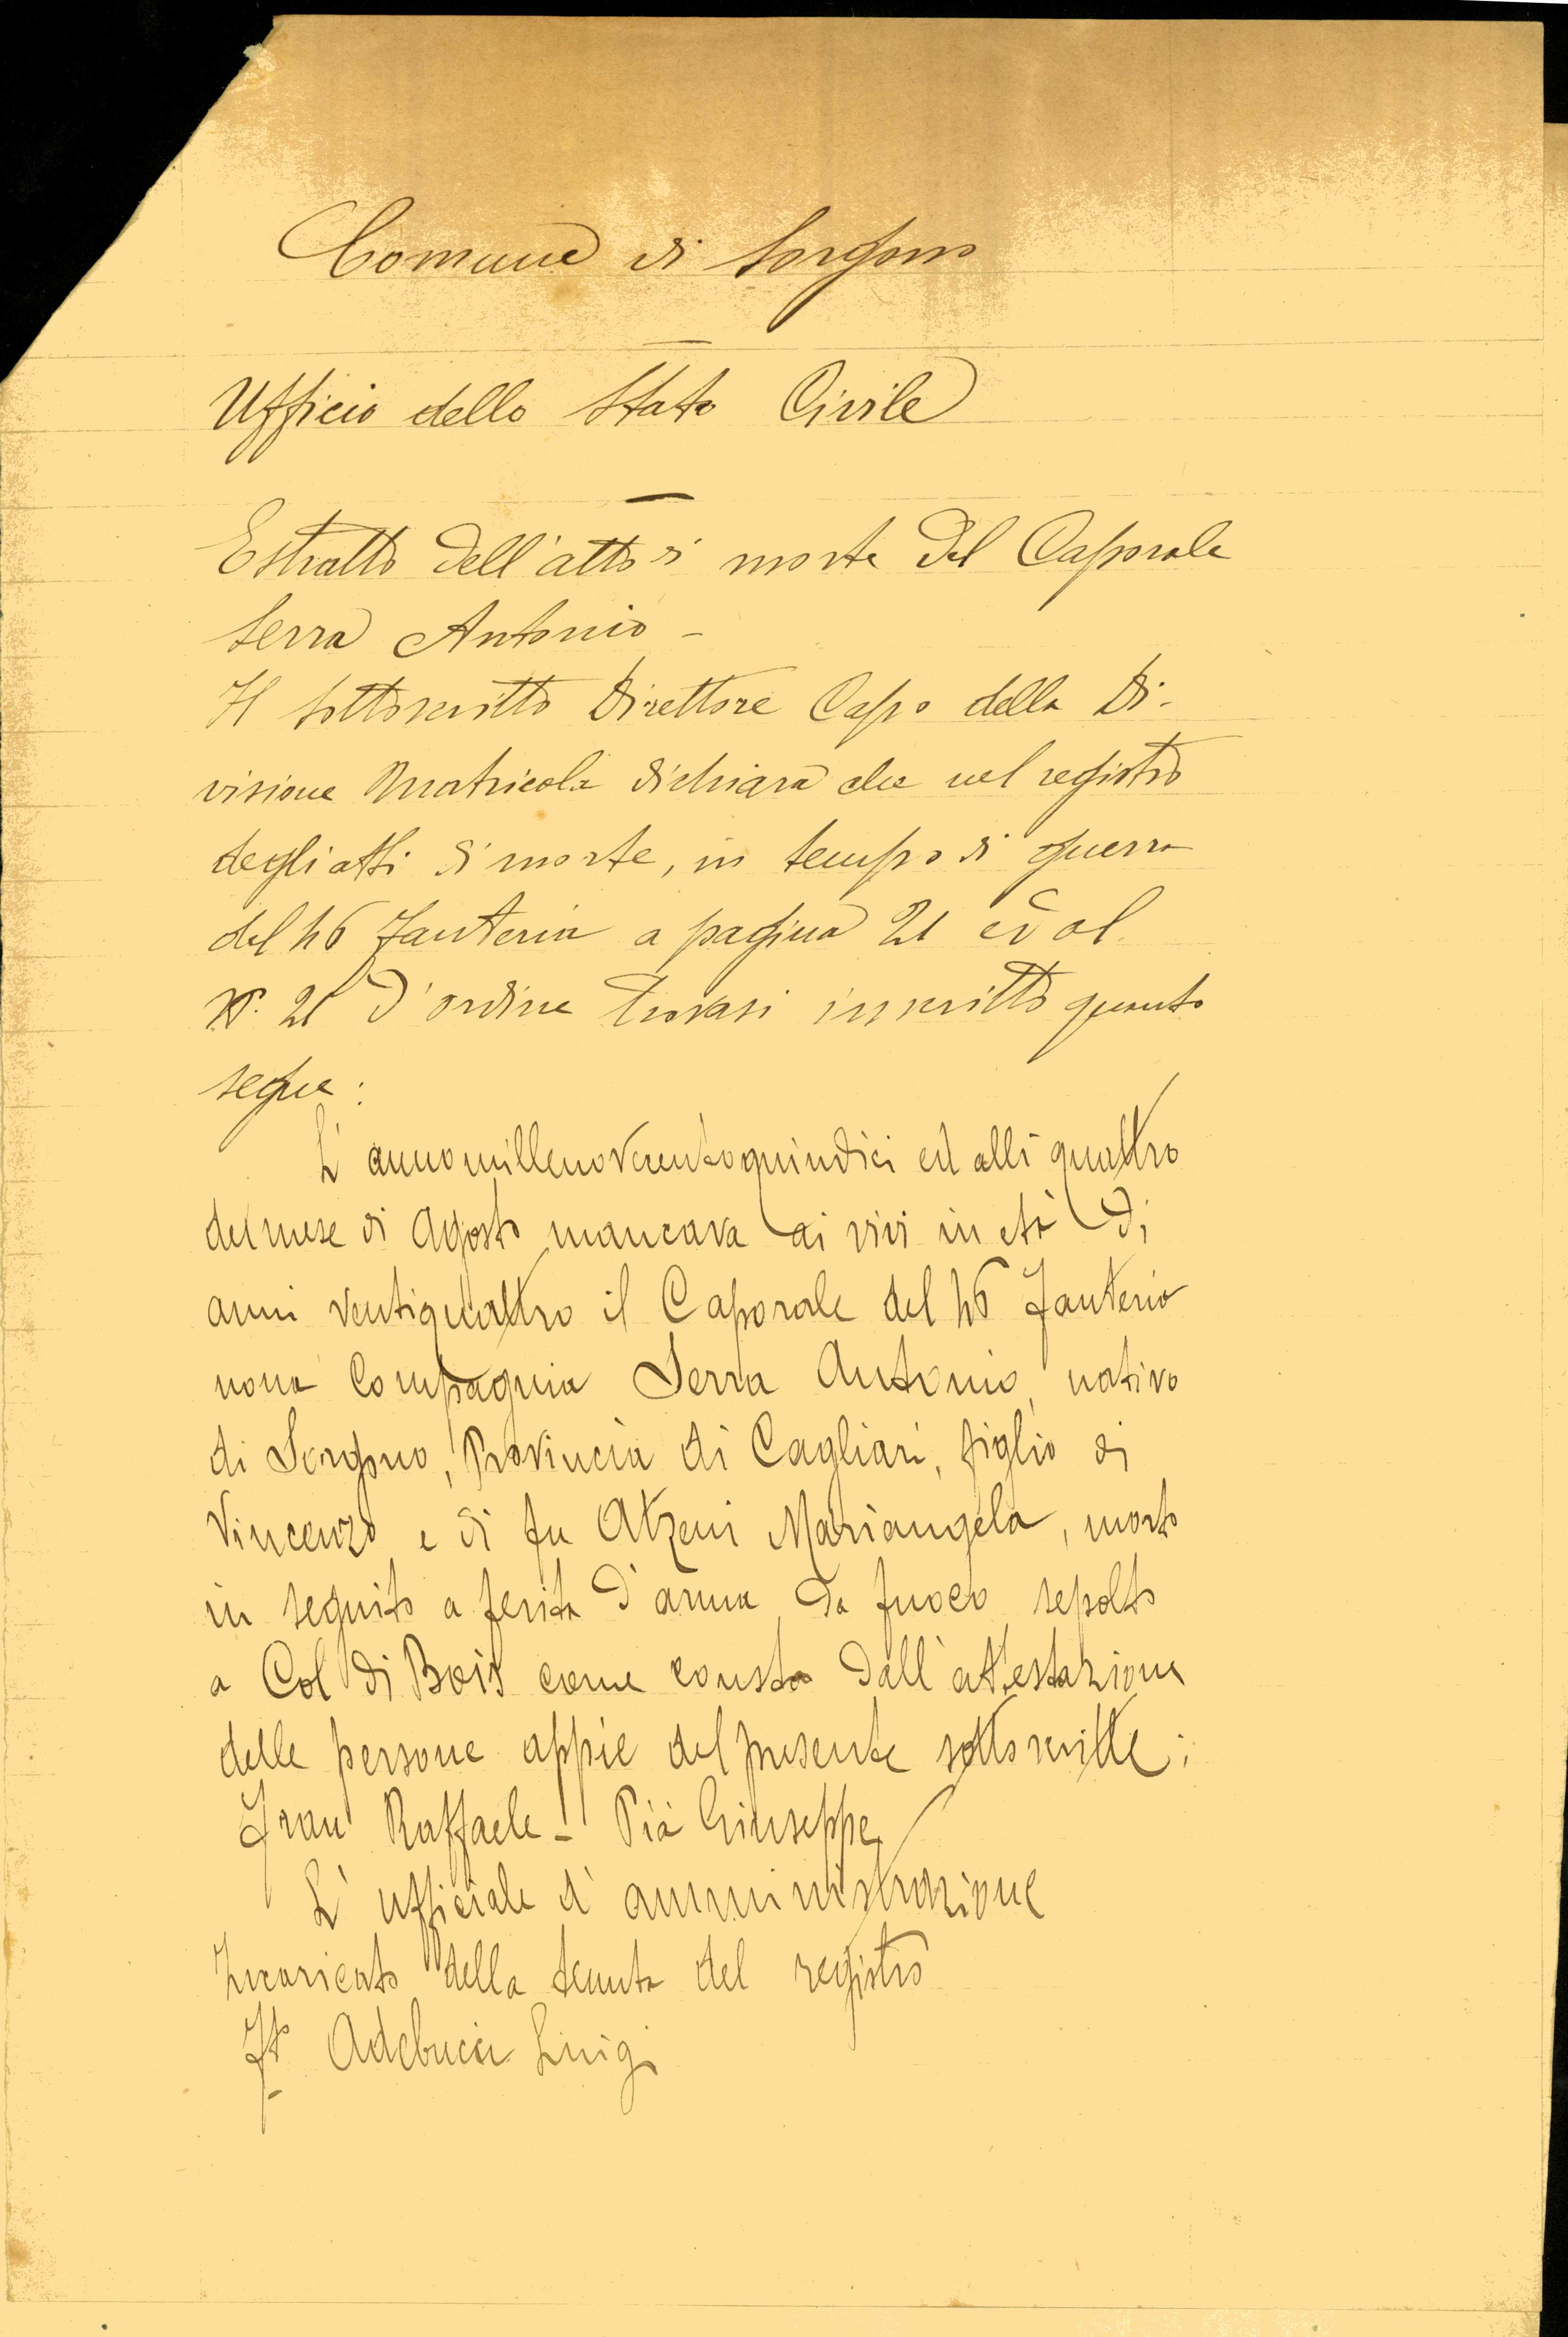 Comune di Sorgono
Ufficio dello Stato Civile
Estratto dell'atto di morte del Caporale
Serra Antonio -
Il sottoscritto Direttore Capo della Di-
visione Matricola dichiara che nel registro
degli atti di morte, in tempo di guerra
del 46 Fanteria a pagina 21 ed al
N. 21 d'ordine trovasi inscritto quanto
segue:
L'anno millenovecentoquindici ed alli quattro
del mese di Agosto mancava ai vivi in età di
anni ventiquattro il Caporale del 46 Fanteria
nona Compagnia Serra Antonio, nativo
di Sorgono, Provincia di Cagliari, figlio di
Vincenzo e di fu Atzeni Mariangela, morto
in seguito a ferita d'arma da fuoco sepolto
a Col di Bois come consta dall'attestazione
delle persone appiè del presente sottoscritte:
Raffaele - Pia Giuseppe
L'ufficiale d'amministrazione
Incaricato della tenuta del registro
Fto Luigi